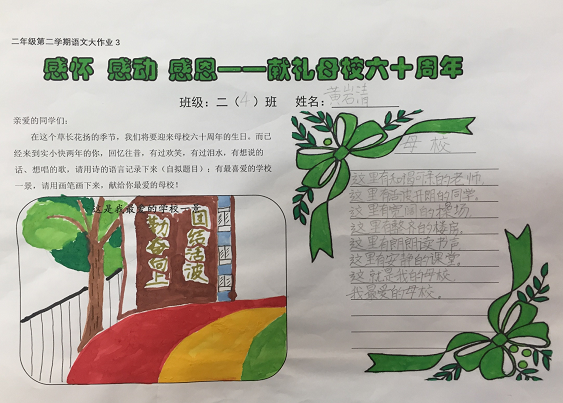 二年级第二学期语文大作业 3
感怀 感动 感恩——献礼母校六十周年
班级：二（4）班 姓名：黄岩清
亲爱的同学们：
在这个草长花扬的季节，我们将要迎来母校六十周年的生日。而已
经来到实小快两年的你，回忆往昔，有过欢笑，有过泪水，有想说的
话、想唱的歌，请用诗的语言记录下来（自拟题目）；有最喜爱的学校
一景，请用画笔画下来，献给你最爱的母校！
这是我最爱的学校一景
团结活波
勤奋向上
母校
这里有和蔼可亲的老师。
这里有活泼开朗的同学。
这里有宽阔的操场。
这里有整齐的楼房。
这里有朗朗读书声。
这里有安静的课堂。
这就是我的母校。
我最爱的母校。